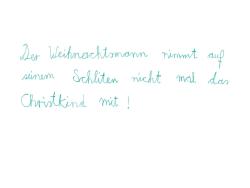 Der Weihnachtsmann nimmt auf
seinem Schlitten nicht mal das
Christkind mit!